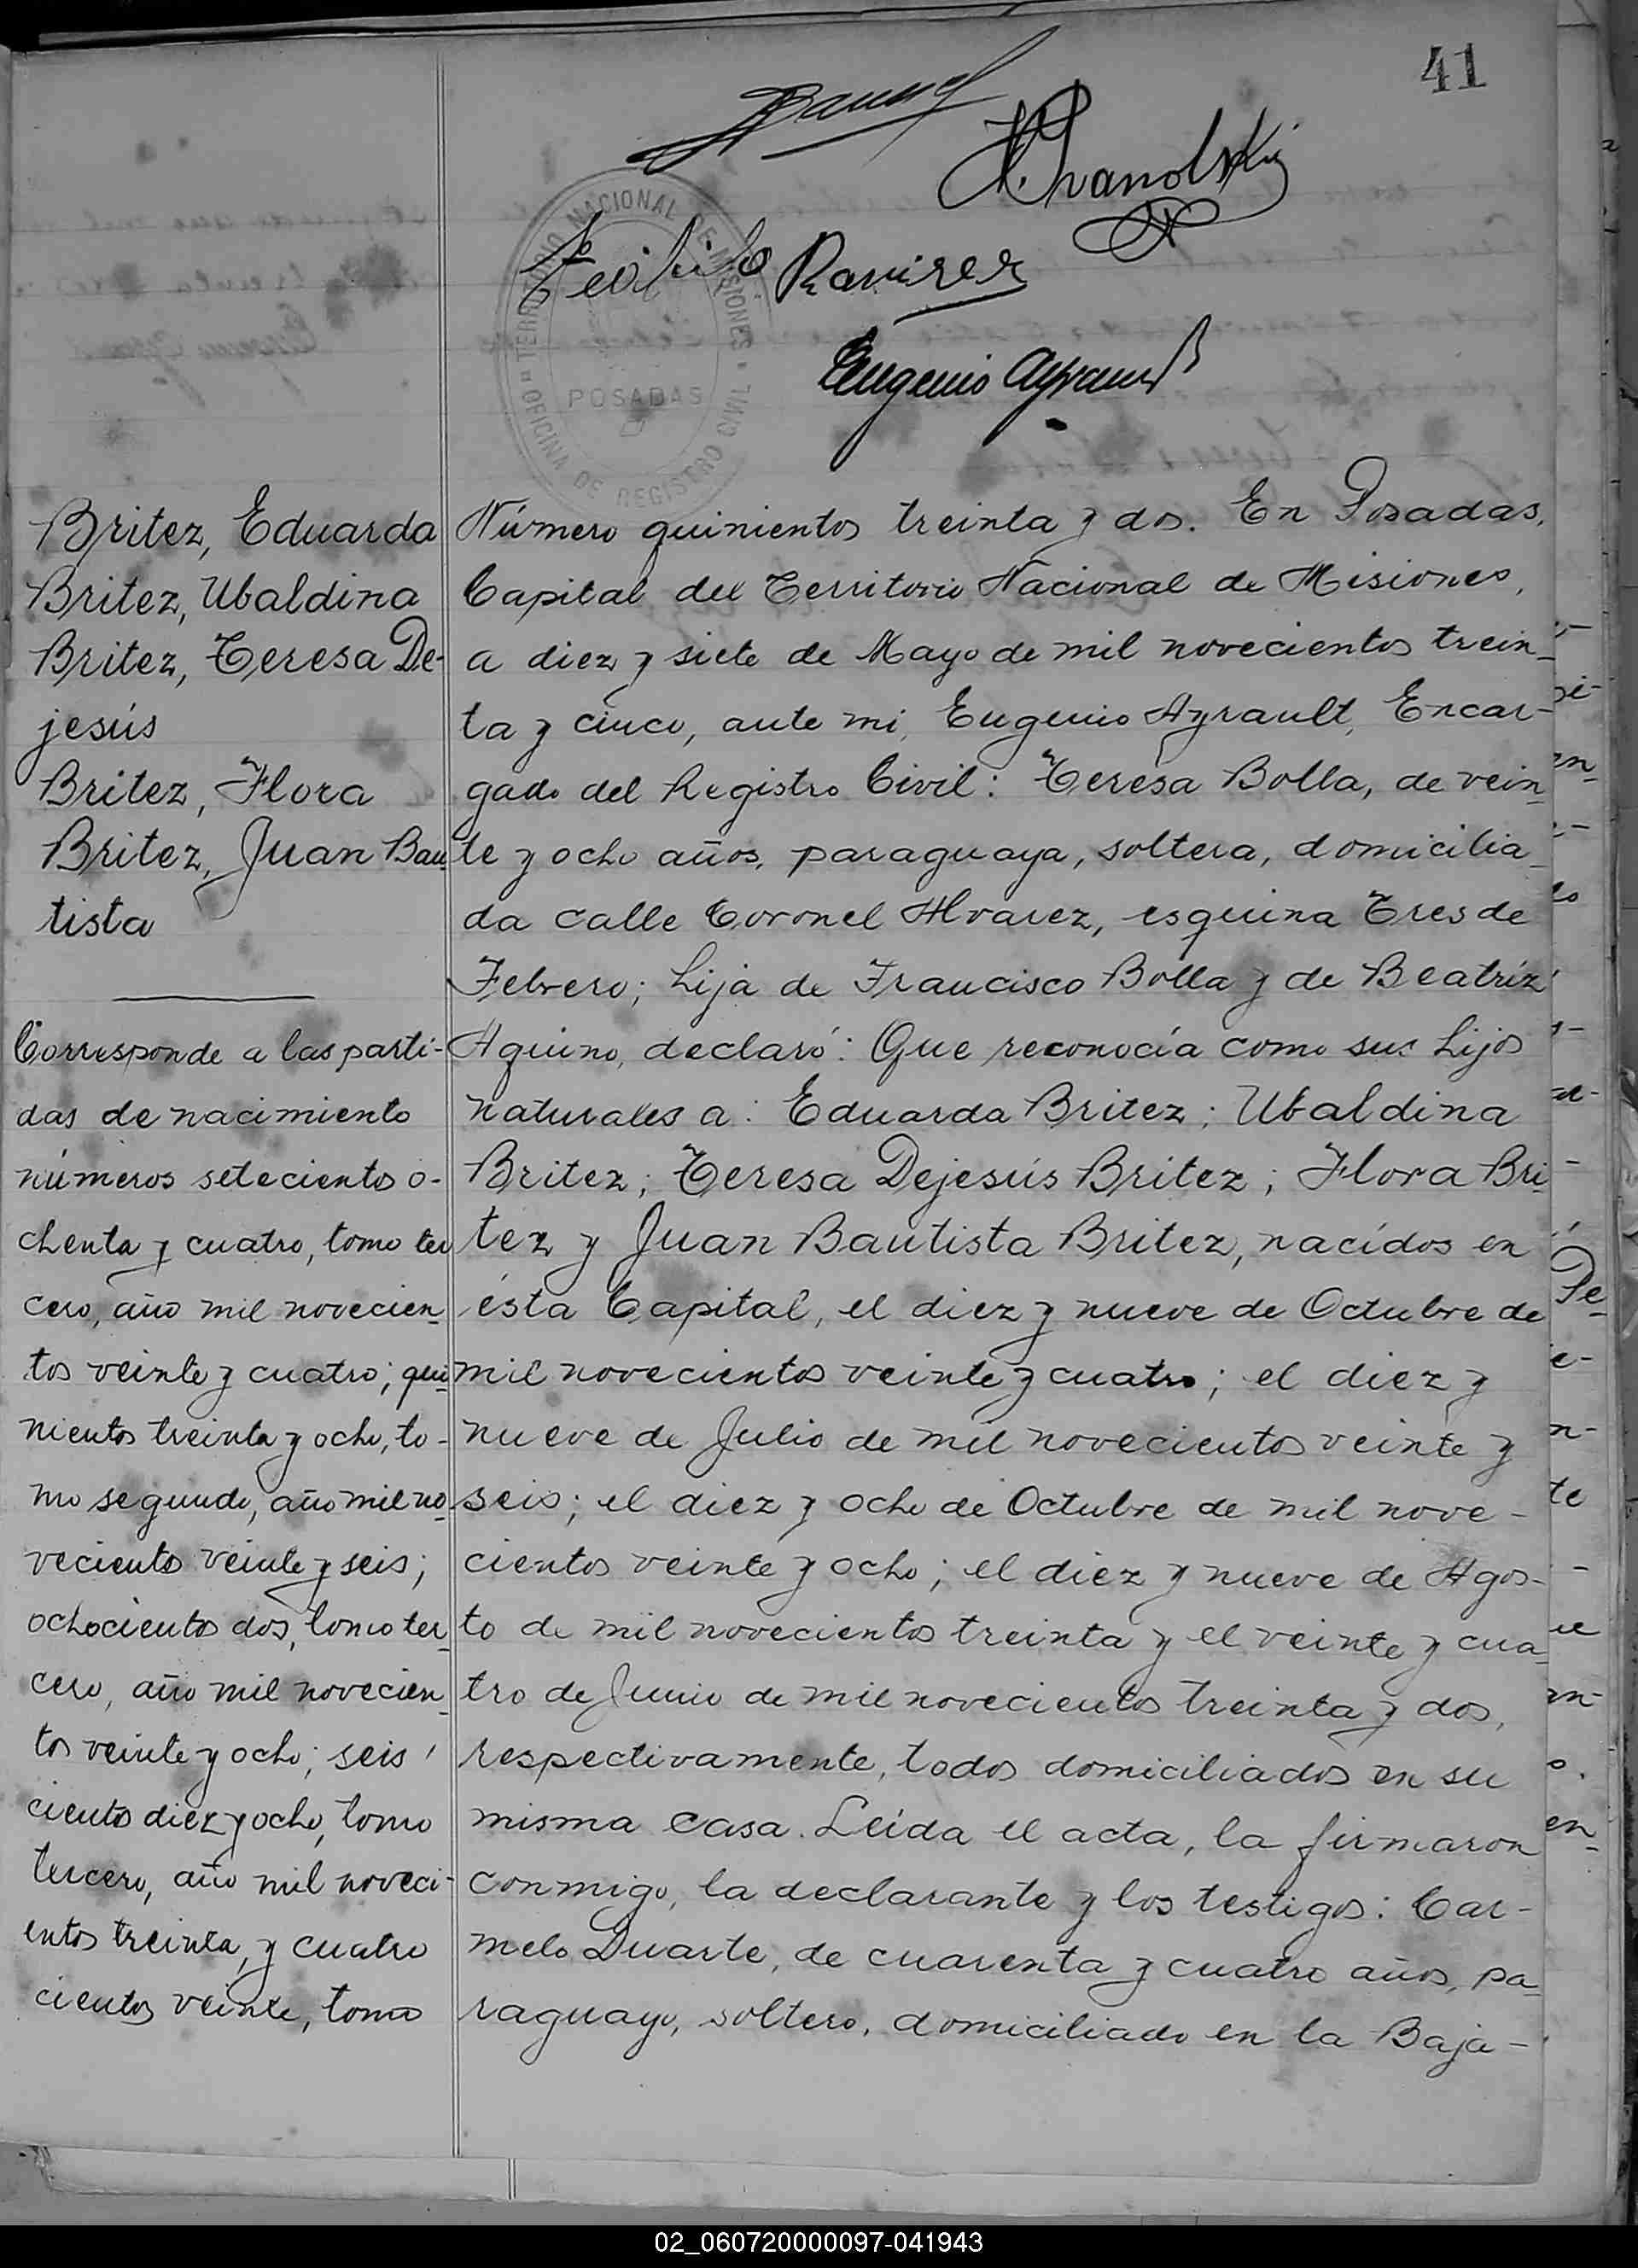 41
H. Ivanolski
Ramirez
Eugenio Ayrault
TERRITORIO NACIONAL DE MISIONES
POSADAS
OFICINA DE REGISTRO CIVIL
Britez, Eduarda
Britez, Ubaldina
Britez, Teresa De-
jesús
Britez, Flora
Britez, Juan Bau
tista
Corresponde a las parti-
das de nacimiento
números setecientos o-
chenta y cuatro, tomo ter
cero, año mil novecien
tos veinte y cuatro; qui
nientos treinta y ocho, to-
mo segundo, año mil no
vecientos veinte y seis;
ochocientos dos, tomo ter
cero, año mil novecien
tos veinte y ocho; seis
cientos diez y ocho, tomo
tercero, año mil noveci-
entos treinta, y cuatro
cientos veinte, tomo
Número quinientos treinta y dos. En Posadas,
Capital del Territorio Nacional de Misiones,
a diez y siete de Mayo de mil novecientos trein
ta y cinco, ante mi, Eugenio Ayrault, Encar-
gado del Registro Civil: Teresa Bolla, de vein
te y ocho años, paraguaya, soltera, domicilia
da calle Coronel Alvarez, esquina Tres de
Febrero; hija de Francisco Bolla y de Beatríz
Aquino, declaró: Que reconocía como sus hijos
naturales a: Eduarda Britez; Ubaldina
Britez; Teresa Dejesús Britez; Flora Bri
tez y Juan Bautista Britez, nacidos en
ésta Capital, el diez y nueve de Octubre de
mil novecientos veinte y cuatro; el diez y
nueve de Julio de mil novecientos veinte y
seis; el diez y ocho de Octubre de mil nove-
cientos veinte y ocho; el diez y nueve de Agos-
to de mil novecientos treinta y el veinte y cua
tro de Junio de mil novecientos treinta y dos,
respectivamente, todos domiciliados en su
misma casa. Leída el acta, la firmaron
conmigo, la declarante y los testigos: Car-
melo Duarte, de cuarenta y cuatro años, pa
raguayo, soltero, domiciliado en la Baja-
02_060720000097-041943